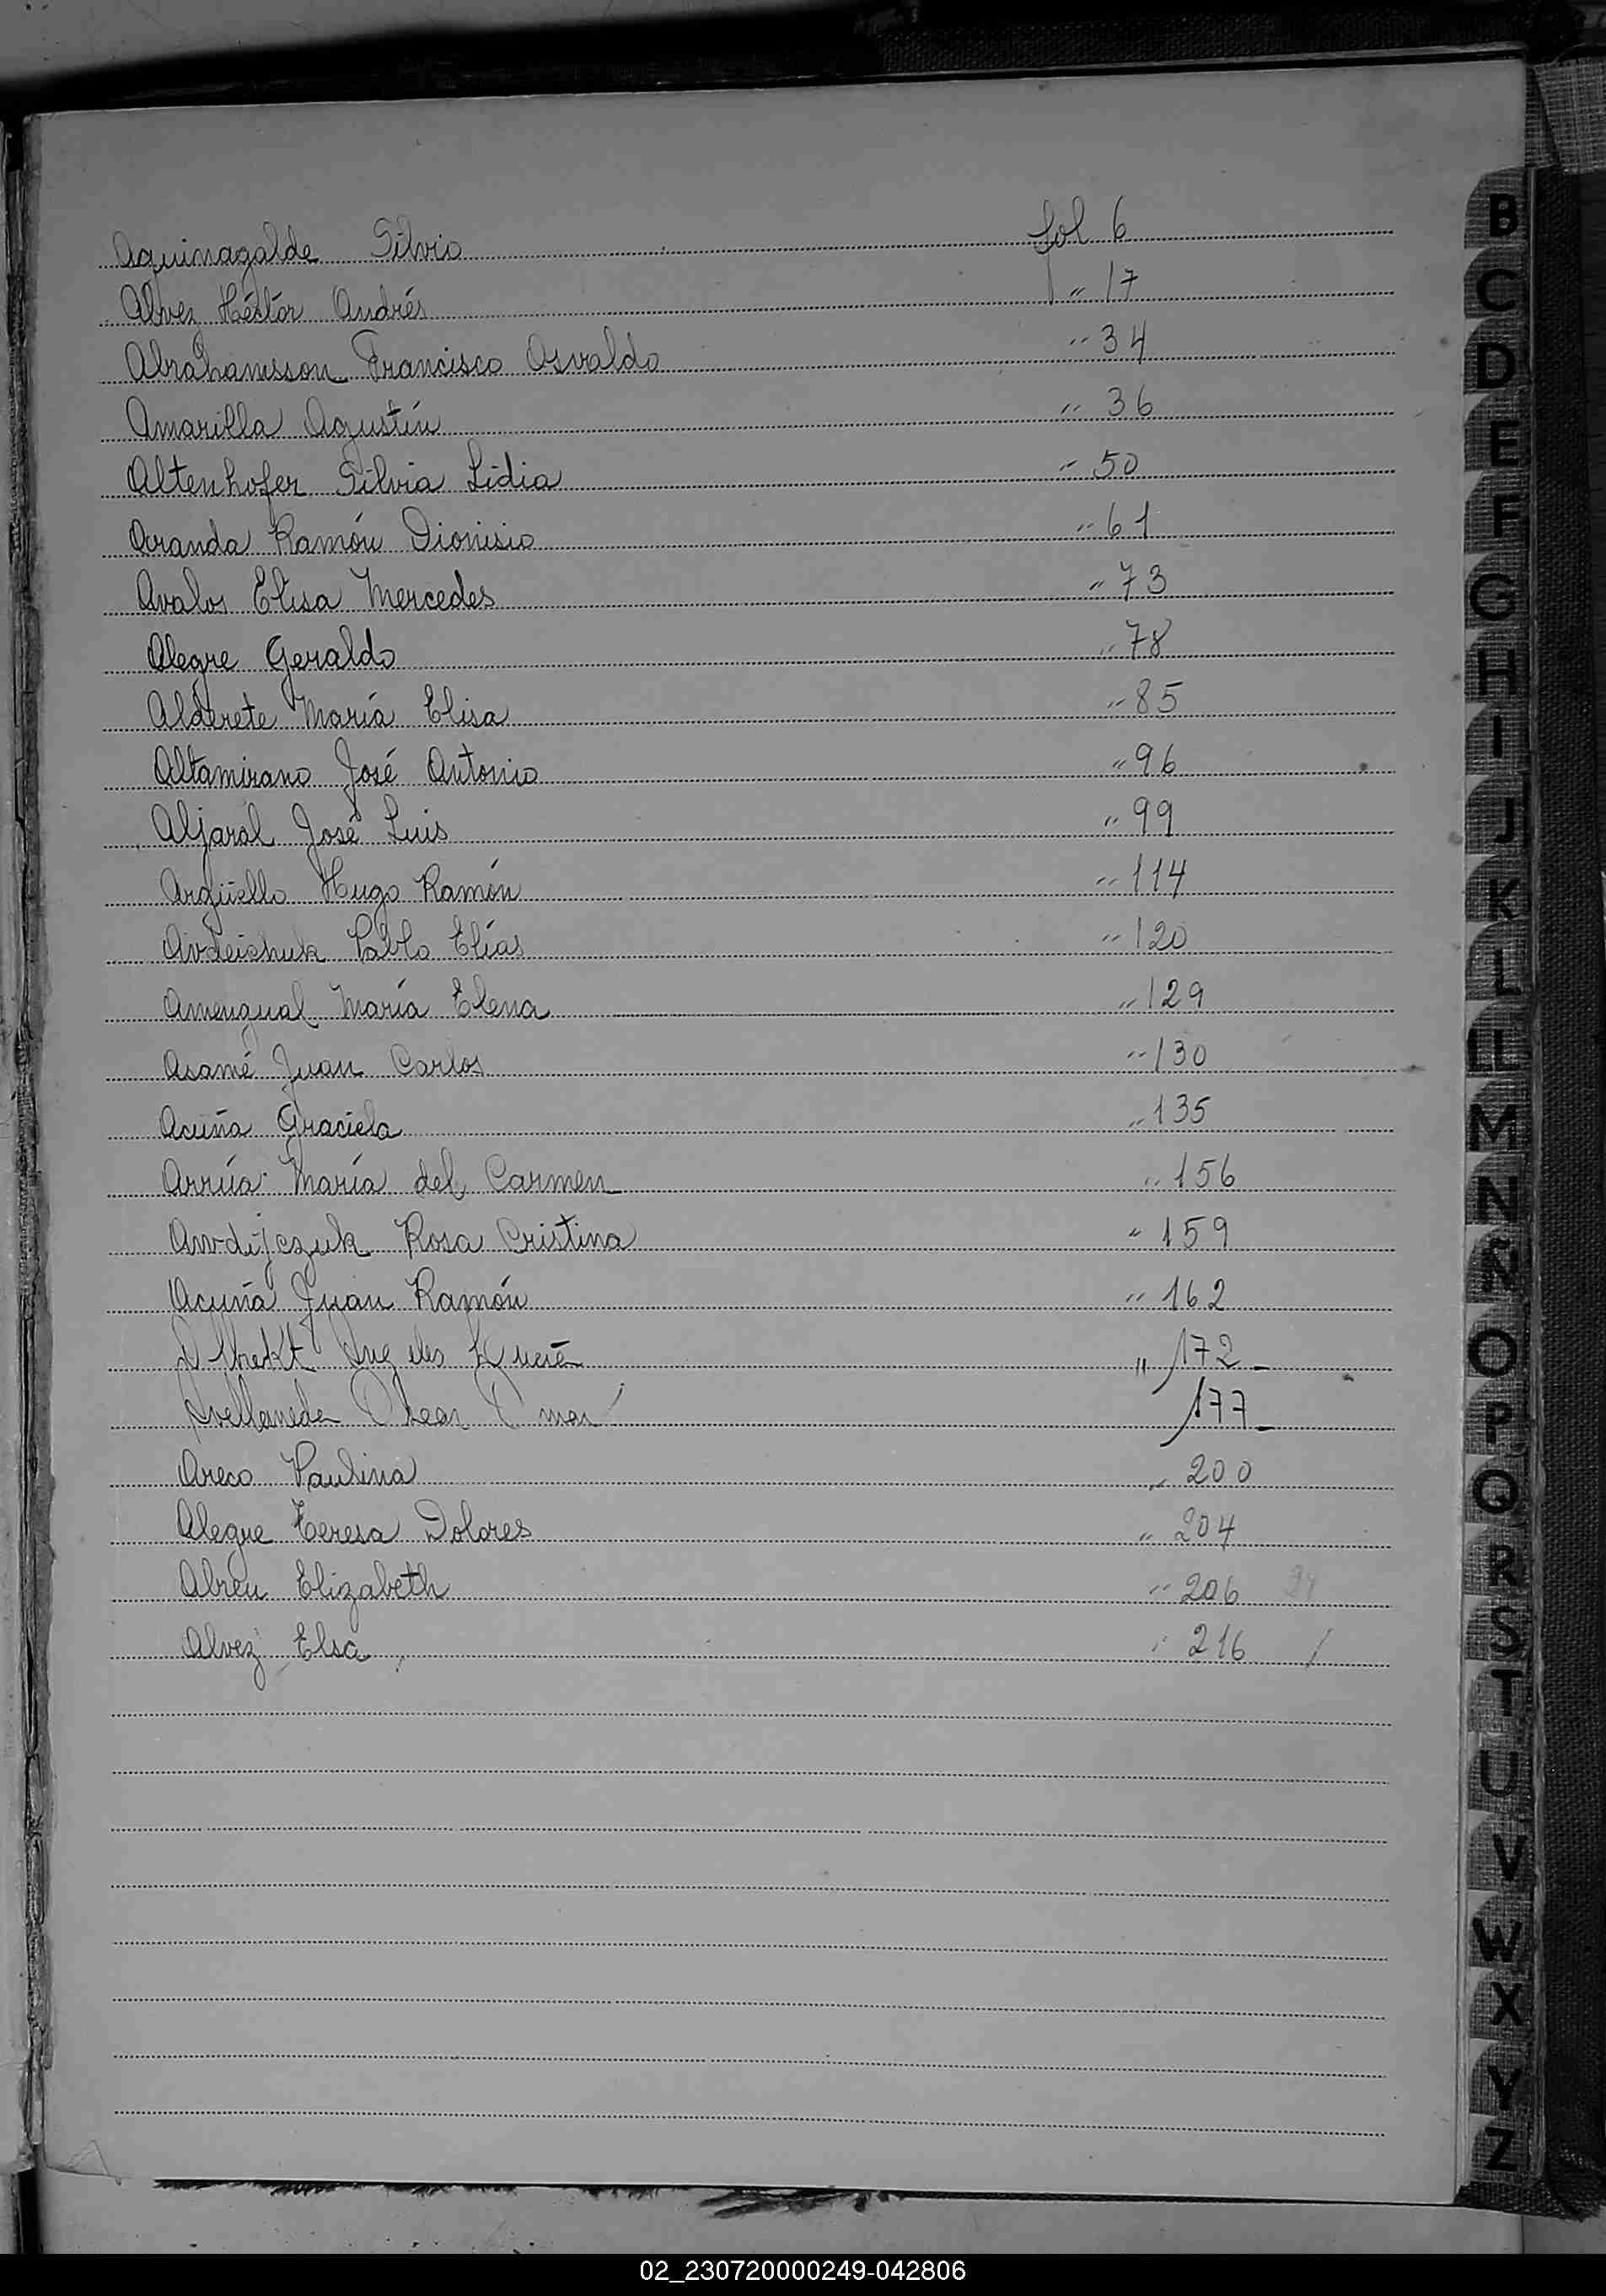 Aguinagalde Silvio fol 6
Alvez Héctor Andrés " 17
Abrahamsson Francisco Osvaldo " 34
Amarilla Agustín " 36
Altenhofer Silvia Lidia " 50
Aranda Ramón Dionisio " 61
Avalos Elisa Mercedes " 73
Alegre Geraldo " 78
Alderete María Elisa " 85
Altamirano José Antonio " 96
Aljaral José Luis " 99
Argüello Hugo Ramón " 114
Avdeichuk Pablo Elías " 120
Amengual María Elena " 129
Asamé Juan Carlos " 130
Acuña Graciela " 135
Arrúa María del Carmen " 156
Awdijczuk Rosa Cristina " 159
Acuña Juan Ramón " 162
Albrekt Lucía " 172
Avellaneda Omar 177
Areco Paulina " 200
Alegre Teresa Dolores " 204
Abreu Elizabeth " 206
Alvez Elsa " 216 /
B
C
D
E
F
G
H
I
J
K
L
LL
M
N
Ñ
O
P
Q
R
S
T
U
V
W
X
Y
Z
02_230720000249-042806